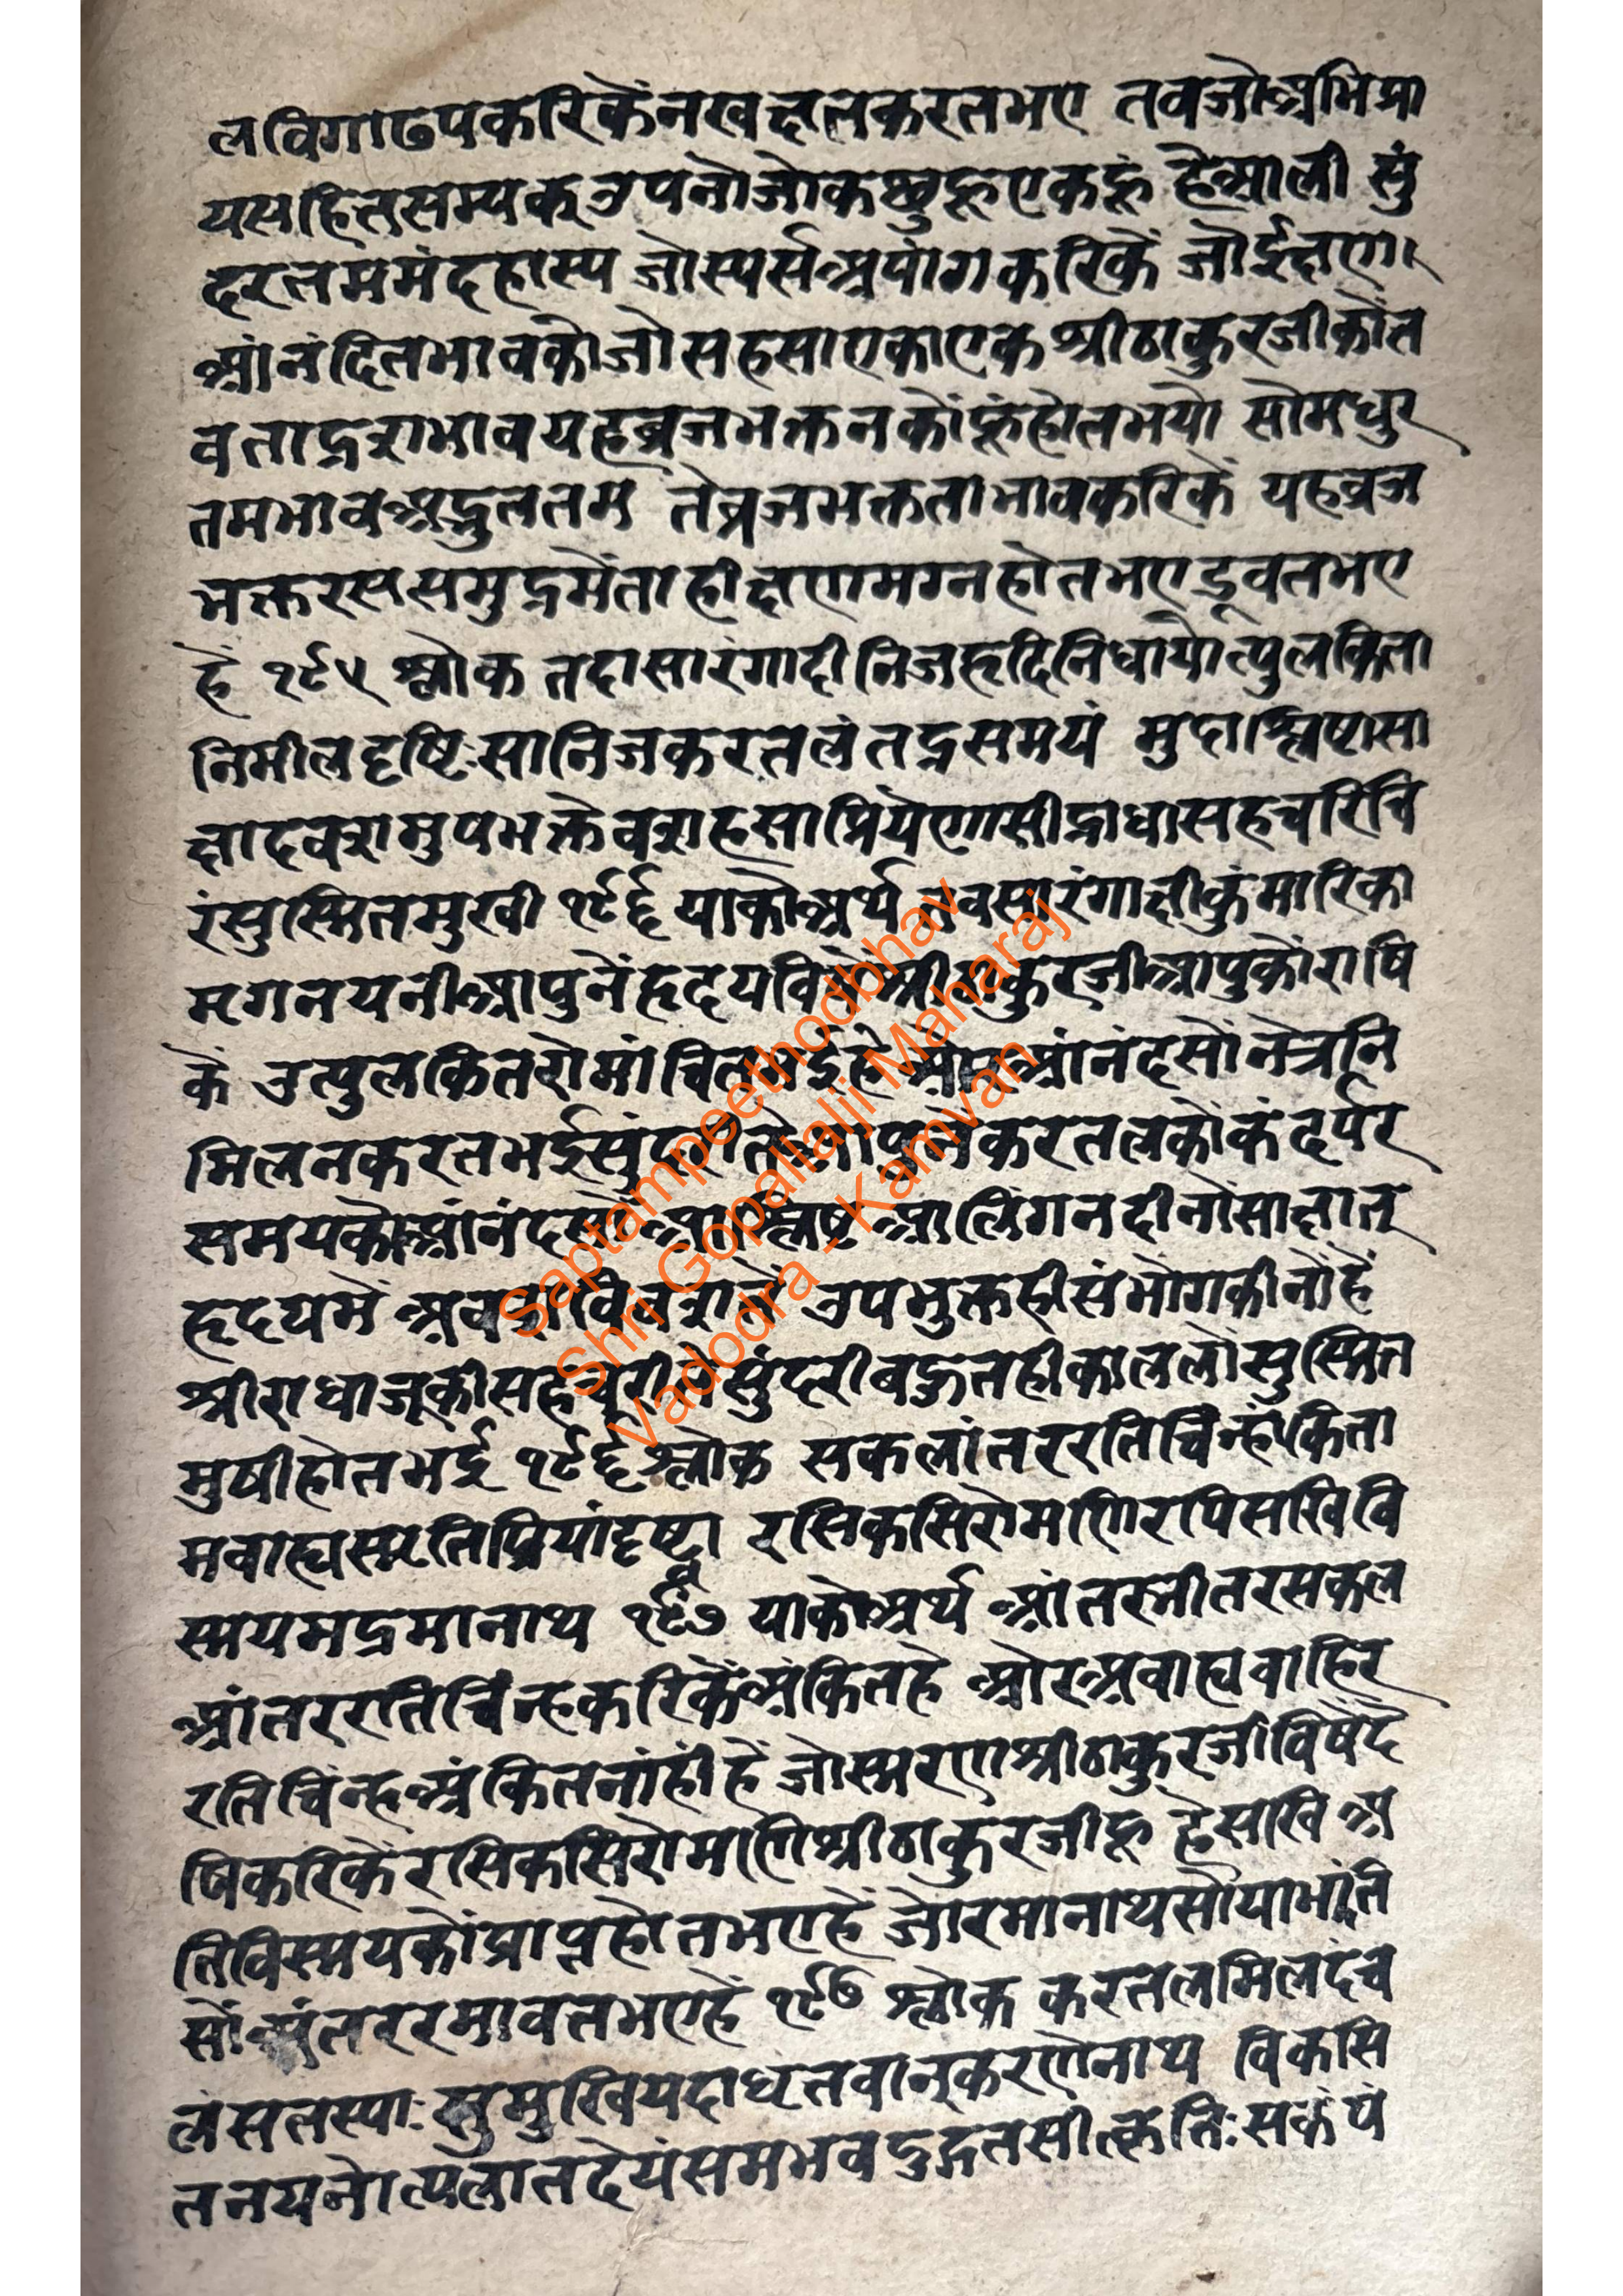 लविगाढपकरिकेंनखक्षालकरतभए तवजोअभिप्रा
यसहितसम्यक्उपनोजोकछुहूएकहूं हेआली सुं
दरतममंदहास्य जोस्पर्सअपांगकरिकें जोईक्षण
आंनंदितभावकौजोसहसाएकाएक श्रीठाकुरजीकोंत
वताद्रशभावयहव्रजभक्तनकोंहूंहोतभयो सोमधुर
तमभावअद्भुततम तेव्रजभक्तताभावकरिकें यहव्रज
भक्तरससमुद्रमेंताहीक्षणमग्नहोतभएडूवतभए
हें १९५ श्लोक तदासारंगादीनिजहृदिनिधायोत्पुलकिता
निमीलदृष्टिःसानिजकरतलंतद्रसमयं मुदाश्लिष्टासा
क्षादवशमुपभक्तेवशहसाप्रियेणासीद्राधासहचरिचि
रंसुस्मितमुखी १९६ याकोअर्थ तवसारंगाक्षीकुंमारिका
मृगनयनीआपुनेंहृदयविषेंश्रीठाकुरजीआपुकोंराषि
कें उत्पुलकितरोमांचितभईहे औरआंनंदसोंनेत्रनि
मिलनकरतभईसुंदरीतेआपुनेंकरतलकोंकंदर्पर
समयकोआंनंदसों आश्लिष्ट आलिंगनदीनोंसाक्षात्
हृदयमें अवशविवशते उपभुक्तहीसंभोगकीनोंहें
श्रीराधाजूकीसहचरीसोसुंदरीबहुतहीकाललोंसुस्मित
मुषीहोतभई १९६ श्लोक सकलांतररतिचिंन्हांकिता
मवाह्यस्मृतिप्रियांदृष्ट्वा रसिकसिरोमणिरपिसखिवि
स्मयमद्रमानाथ १९७ याकोअर्थ आंतरनीतरसकल
आंतररतिचिंन्हकरिकेंअंकितहे औरअवाह्यवाहिर
रतिचिंन्हअंकितनांहीं हें जोस्मरणश्रीठाकुरजीविषेंदे
षिकरिकेंरसिकसिरोमणिश्रीठाकुरजीहू हेसखि अ
तिविस्मयकोंप्राप्तहोतभएहें जोरमानाथसोयाभांति
सोंअंतररमावतभएहें १९७ श्लोक करतलमिलदंच
लंसतस्याः सुमुखियदाधृतवान्करणेनाथ विकसि
तनयनोत्पलातदेयंसमभवदुद्गतसीत्कृतिःसकंपं
Saptampeethodbhav
Shri Gopallalji Maharaj
Vadodra - Kamvan